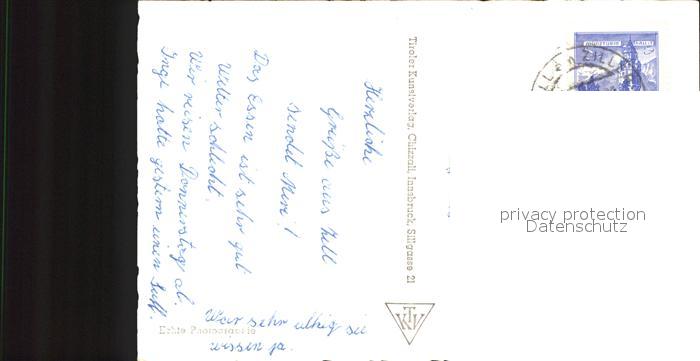 Herzliche
Grüße aus Zell
sendet Mimi!
Das Essen ist sehr gut
Wetter schlecht.
Wir reisen Donnerstag ab.
Inge hatte gestern einen Suff.
War sehr ulkig sie
wissen ja.
Echte Photographie
Tiroler Kunstverlag, Chizzali, Innsbruck, Sillgasse 21
TKV
privacy protection
Datenschutz